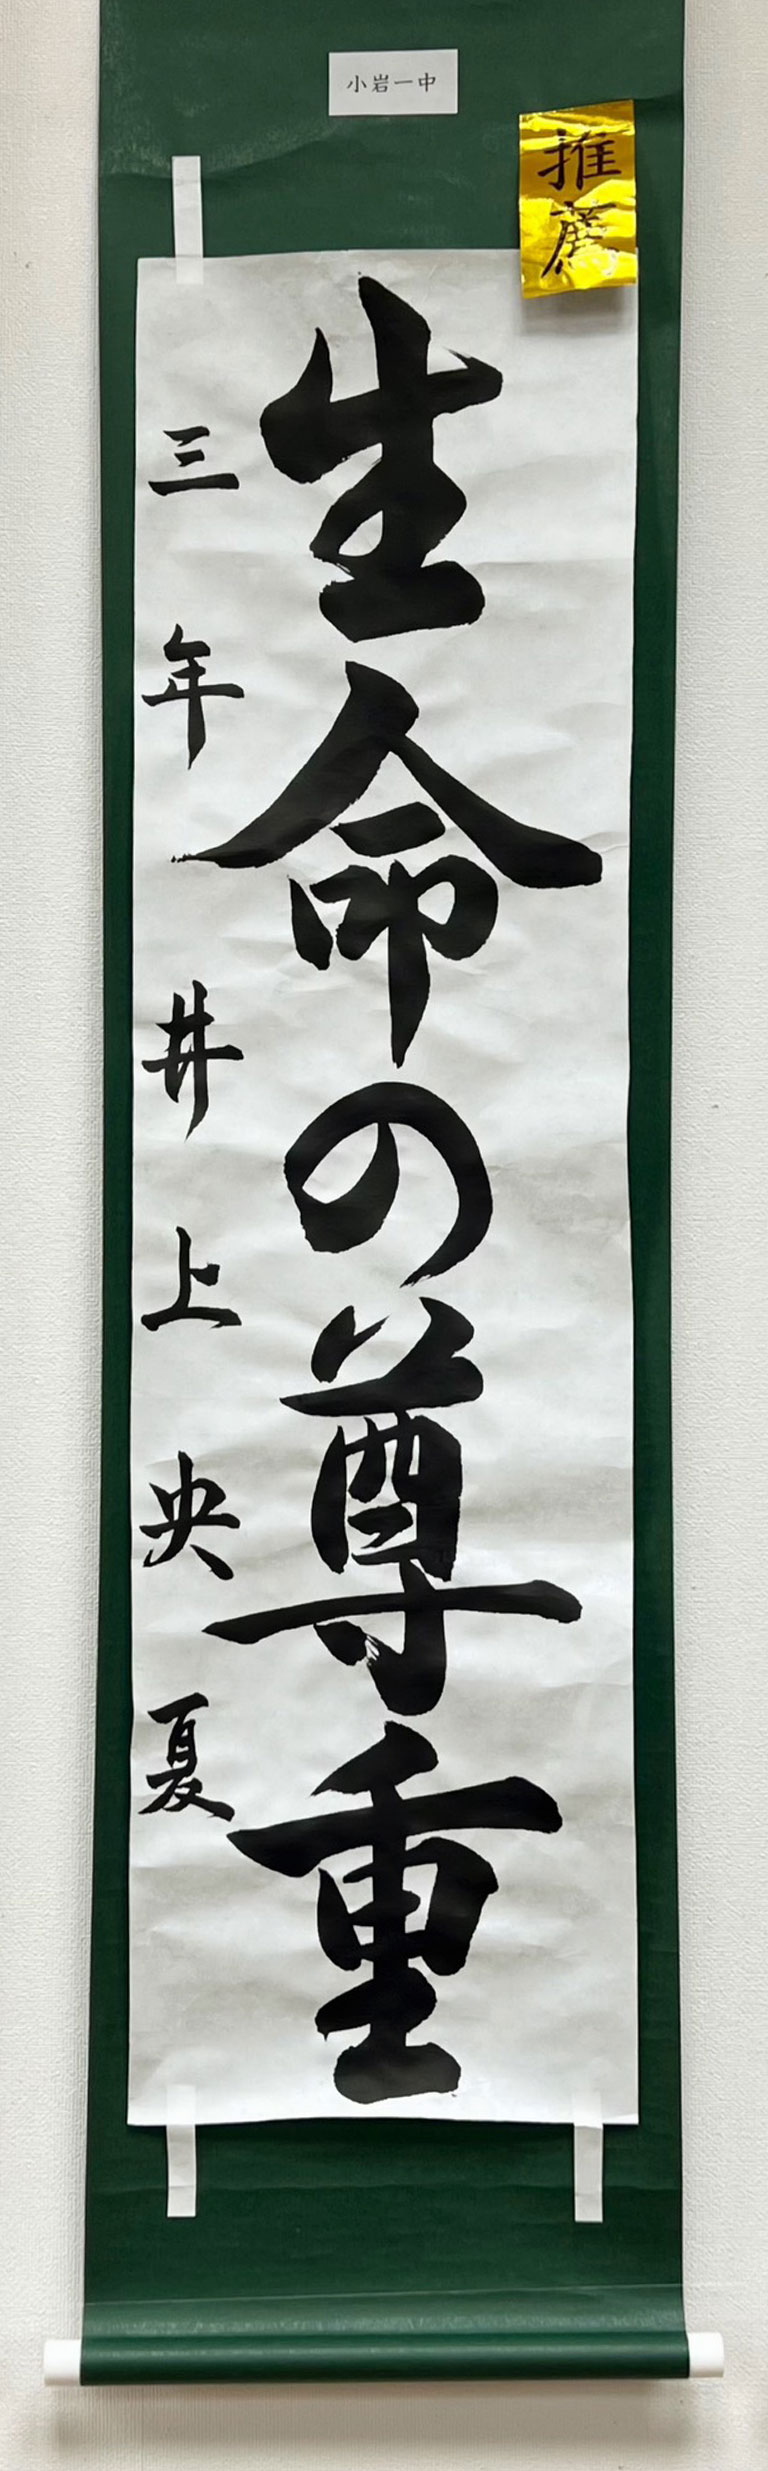 小岩一中
推薦
生命の尊重
三年 井上央夏